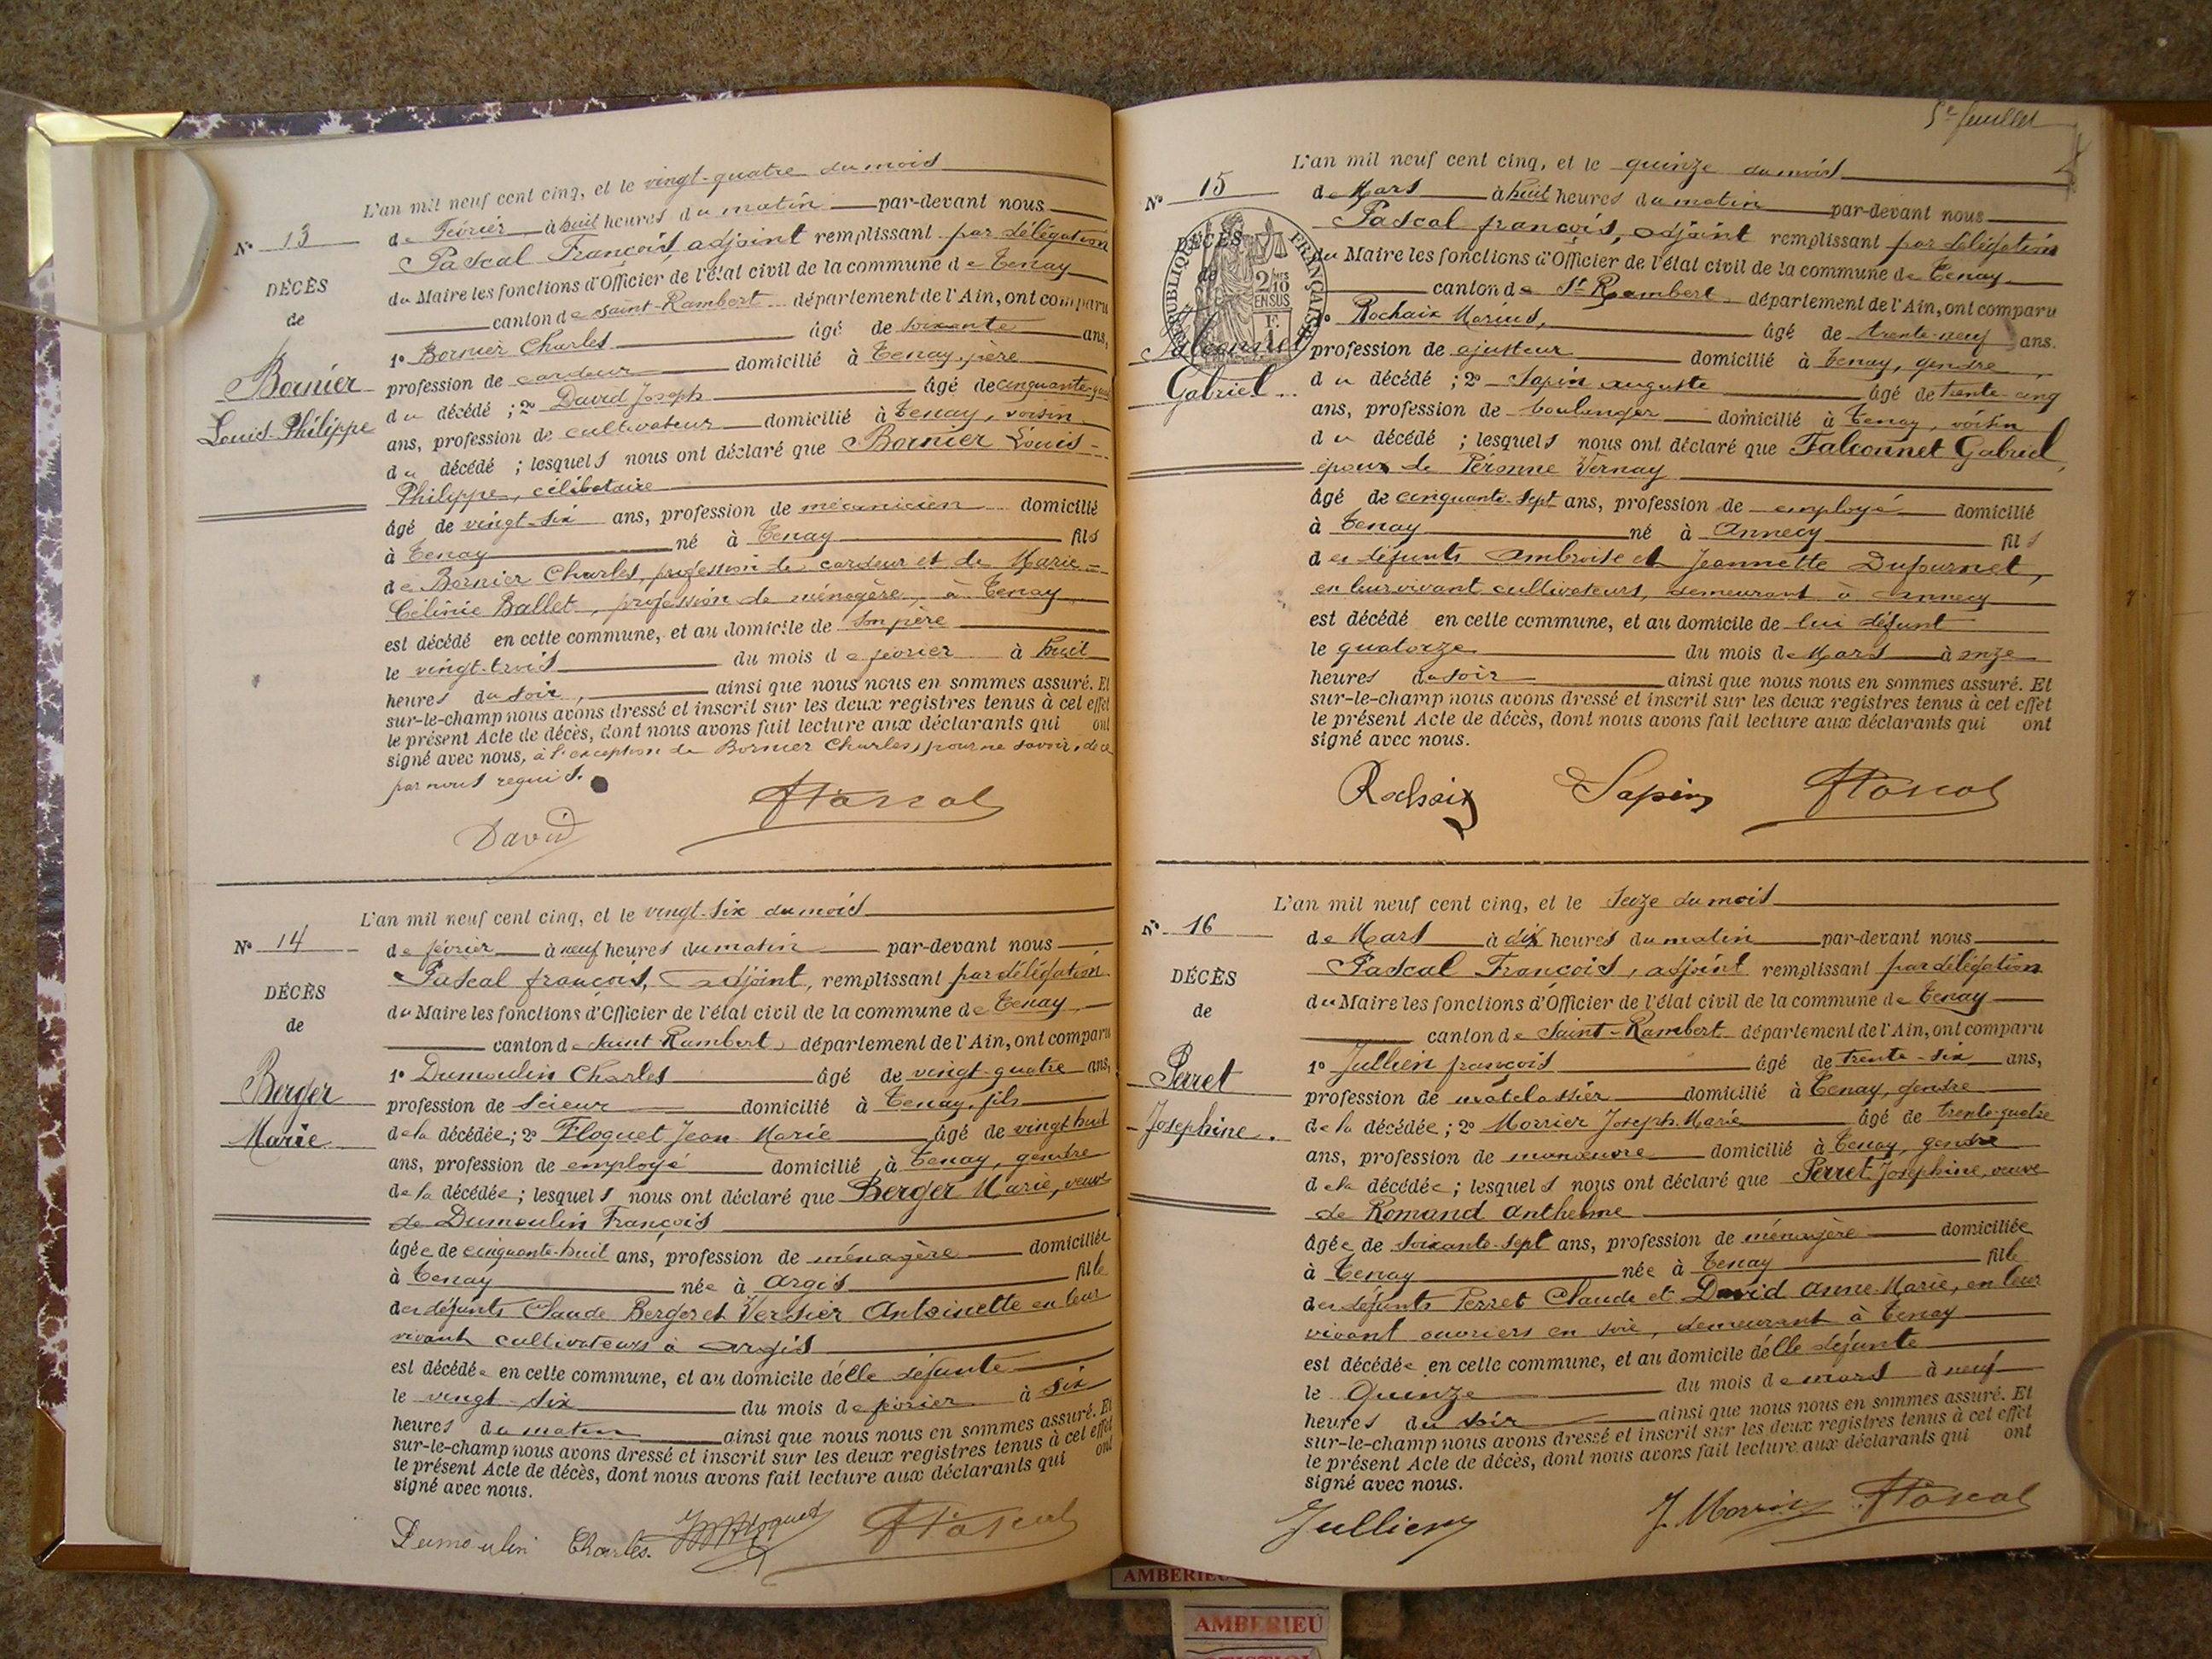 L'an mil neuf cent cinq, et le vingt-quatre du mois
N° 13
de Février à huit heures du matin par-devant nous
Pascal François, adjoint remplissant par délégation
DÉCÈS
du Maire les fonctions d'Officier de l'état civil de la commune de Tenay
de
canton de Saint-Rambert département de l'Ain, ont comparu
1° Bornier Charles âgé de soixante ans,
Bornier
profession de cardeur domicilié à Tenay, père
Louis-Philippe
du décédé ; 2° David Joseph âgé de cinquante-
ans, profession de cultivateur domicilié à Tenay, voisin
du décédé ; lesquels nous ont déclaré que Bornier Louis-
Philippe, célibataire
âgé de vingt-six ans, profession de mécanicien domicilié
à Tenay né à Tenay fils
de Bornier Charles, profession de cardeur et de Marie-
Célinie Ballet, profession de ménagère, à Tenay
est décédé en cette commune, et au domicile de son père
le vingt-trois du mois de février à huit
heures du soir, ainsi que nous nous en sommes assuré. Et
sur-le-champ nous avons dressé et inscrit sur les deux registres tenus à cet effet
le présent Acte de décès, dont nous avons fait lecture aux déclarants qui ont
signé avec nous, à l'exception de Bornier Charles, pour ne savoir, de ce
par nous requis.
David FPascal
L'an mil neuf cent cinq, et le vingt-six du mois
N° 14
de février à neuf heures du matin par-devant nous
Pascal françois, adjoint, remplissant par délégation
DÉCÈS
du Maire les fonctions d'Officier de l'état civil de la commune de Tenay
de
canton de Saint Rambert, département de l'Ain, ont comparu
Berger
1° Dumoulin Charles âgé de vingt-quatre ans,
profession de scieur domicilié à Tenay, fils
Marie
de la décédée ; 2° Floquet Jean Marie âgé de vingt huit
ans, profession de employé domicilié à Tenay, gendre
de la décédée ; lesquels nous ont déclaré que Berger Marie, veuve
de Dumoulin François
âgée de cinquante-huit ans, profession de ménagère domiciliée
à Tenay née à Argis fille
des défunts Claude Berger et Versier Antoinette en leur
vivant cultivateurs à Argis
est décédée en cette commune, et au domicile d'elle défunte
le vingt-six du mois de février à six
heures du matin ainsi que nous nous en sommes assuré. Et
sur-le-champ nous avons dressé et inscrit sur les deux registres tenus à cet effet
le présent Acte de décès, dont nous avons fait lecture aux déclarants qui ont
signé avec nous.
Dumoulin Charles. JMFloquet FPascal
5e feuillet
L'an mil neuf cent cinq, et le quinze du mois
N° 15
de Mars à huit heures du matin par-devant nous
Pascal françois, adjoint remplissant par délégation
DÉCÈS
du Maire les fonctions d'Officier de l'état civil de la commune de Tenay
de
canton de St Rambert département de l'Ain, ont comparu
RÉPUBLIQUE FRANÇAISE
2/10 EN SUS
1° Rochaix Marius, âgé de trente-neuf ans.
Falconnet
profession de ajusteur domicilié à Tenay, gendre
Gabriel
du décédé ; 2° Sapin auguste âgé de trente-cinq
ans, profession de boulanger domicilié à Tenay, voisin
du décédé ; lesquels nous ont déclaré que Falconnet Gabriel,
époux de Péronne Vernay
âgé de cinquante-sept ans, profession de employé domicilié
à Tenay né à Annecy fils
des défunts Ambroise et Jeannette Dufournet,
en leur vivant cultivateurs, demeurant à Annecy
est décédé en cette commune, et au domicile de lui défunt
le quatorze du mois de Mars à onze
heures du soir ainsi que nous nous en sommes assuré. Et
sur-le-champ nous avons dressé et inscrit sur les deux registres tenus à cet effet
le présent Acte de décès, dont nous avons fait lecture aux déclarants qui ont
signé avec nous.
Rochaix Sapin FPascal
L'an mil neuf cent cinq, et le Seize du mois
N° 16
de Mars à dix heures du matin par-devant nous
Pascal François, adjoint remplissant par délégation
DÉCÈS
du Maire les fonctions d'Officier de l'état civil de la commune de Tenay
de
canton de Saint-Rambert département de l'Ain, ont comparu
1° Jullien françois âgé de trente-six ans,
Perret
profession de matelassier domicilié à Tenay, gendre
Josephine.
de la décédée ; 2° Morrier Joseph-Marie âgé de trente-quatre
ans, profession de manœuvre domicilié à Tenay, gendre
de la décédée ; lesquels nous ont déclaré que Perret Josephine, veuve
de Romand Anthelme
âgée de soixante-sept ans, profession de ménagère domiciliée
à Tenay née à Tenay fille
des défunts Perret Claude et David Anne-Marie, en leur
vivant ouvriers en soie, demeurant à Tenay
est décédée en cette commune, et au domicile d'elle défunte
le Quinze du mois de mars à neuf
heures du soir ainsi que nous nous en sommes assuré. Et
sur-le-champ nous avons dressé et inscrit sur les deux registres tenus à cet effet
le présent Acte de décès, dont nous avons fait lecture aux déclarants qui ont
signé avec nous.
Jullien J. Morrier FPascal
AMBERIEU
AMBERIEU